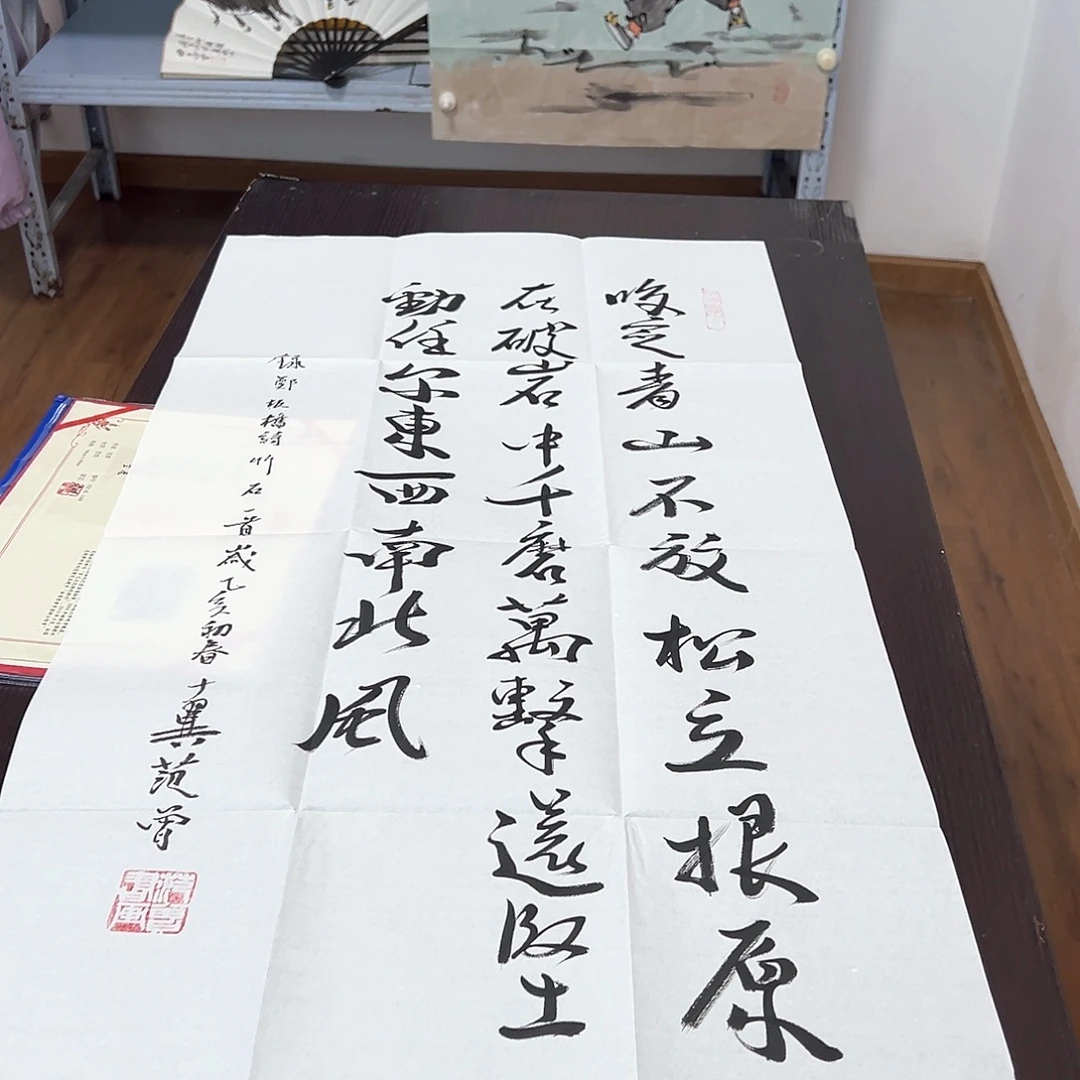 咬定青山不放松立根原
在破岩中千磨萬擊還坚
勁任尔東西南北風
録鄭板橋詩竹石一首歲乙亥初春十翼范曾